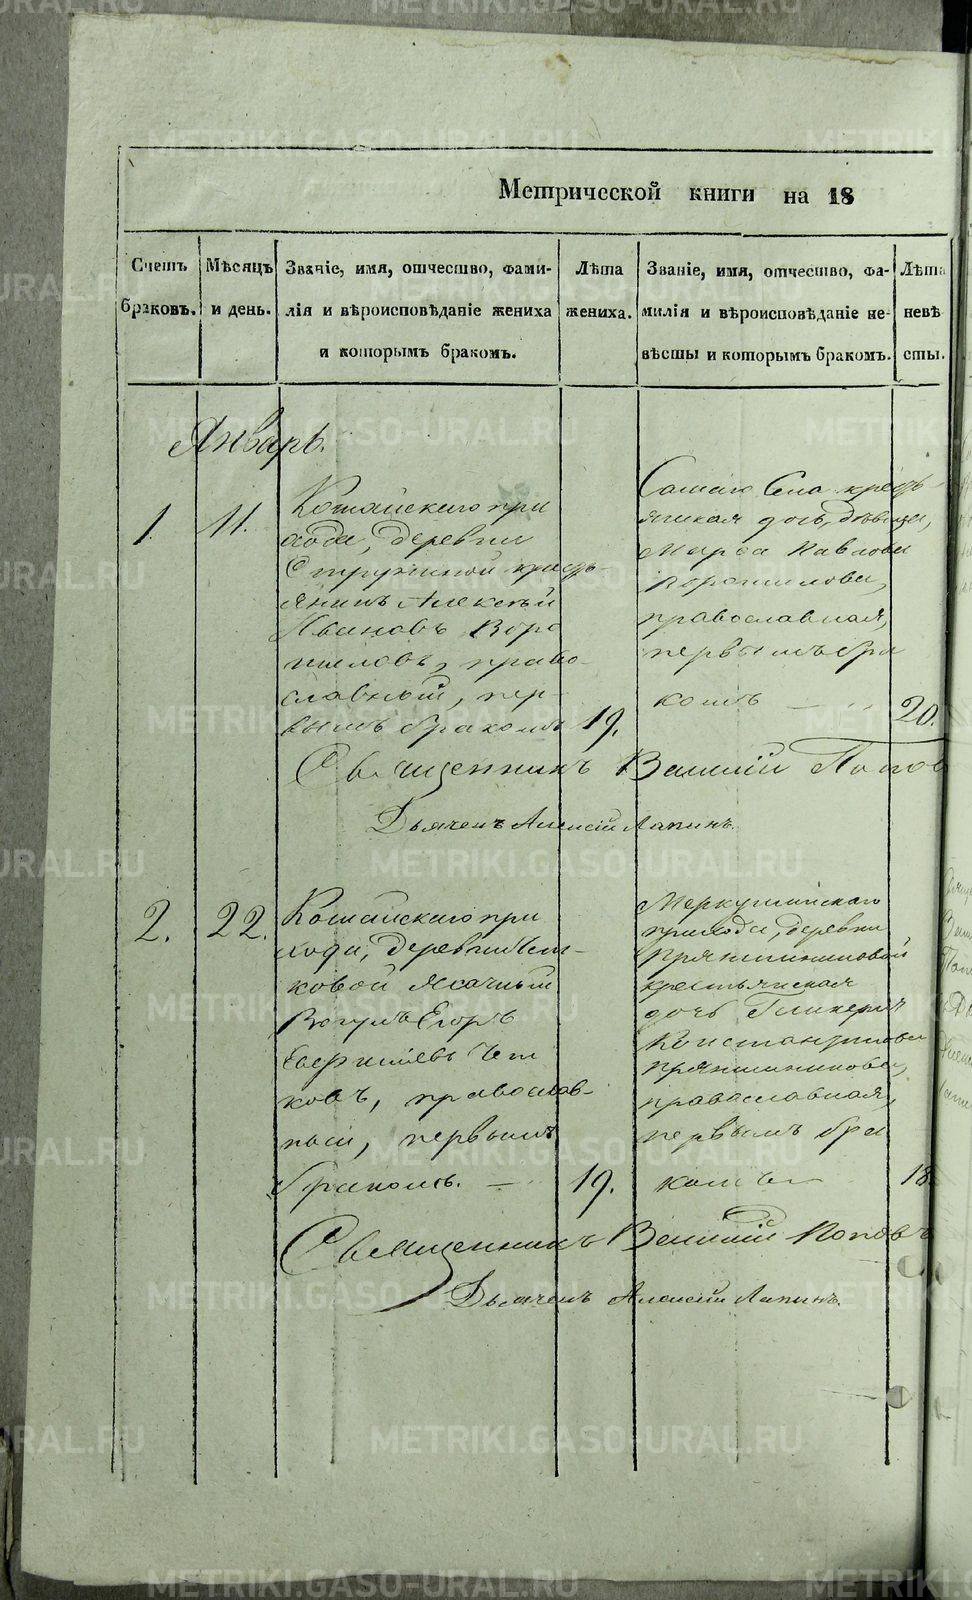 Метрической книги на 18
Счетъ браковъ.
Мѣсяцъ и день.
Званіе, имя, отчество, фами-
лія и вѣроисповѣданіе жениха
и которымъ бракомъ.
Лѣта жениха.
Званіе, имя, отчество, фа-
милія и вѣроисповѣданіе не-
вѣсты и которымъ бракомъ.
Лѣта
невѣ
сты.
Январь.
1.
11.
Кошайскаго при
хода, деревни
кресть-
янинъ Алексѣй
Ивановъ Воро
шиловъ, право-
славный, пер-
вымъ бракомъ
19.
Самаго Села кресть-
янская дочь, дѣвица,
Павлова
Ворошилова,
православная,
первымъ бра
комъ
20.
Священникъ Василій Попов
Дьячекъ Алексій Лапинъ.
2.
22.
Кошайскаго при
хода, деревни
ковой Ясачный
Вогулъ Егоръ
ковъ, православ-
ный, первымъ
бракомъ.
19.
Меркушинскаго
прихода, деревни
Прянишниковой
крестьянская
дочь Гликерія
Константинова
Прянишникова,
православная,
первымъ бра
комъ
18.
Священникъ Василій Поповъ
Дьячекъ Алексій Лапинъ.
METRIKI.GASO-URAL.RU